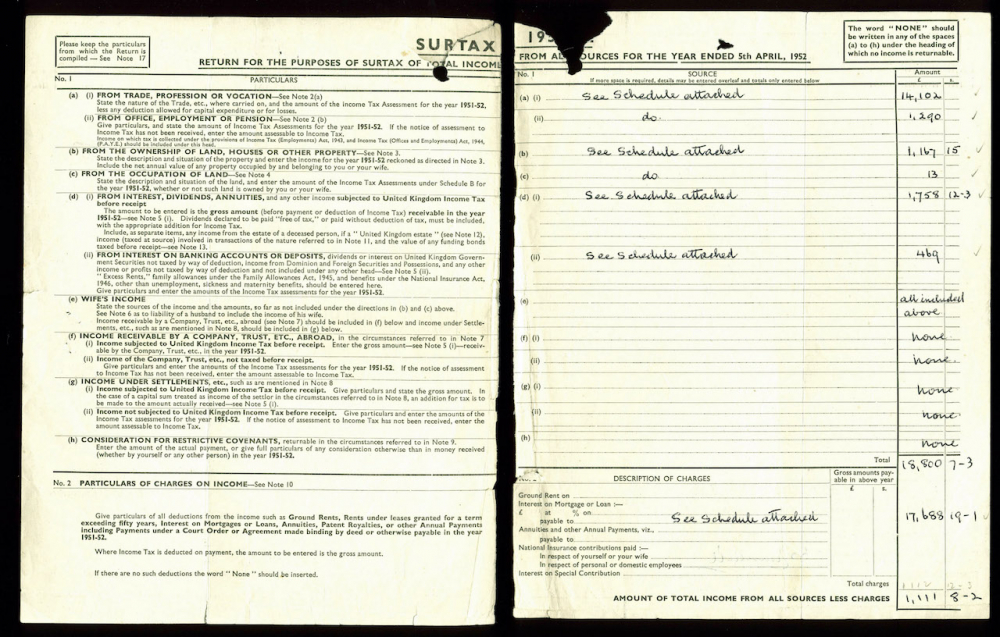 Please keep the particulars
from which the Return is
compiled — See Note 17
SURTAX
RETURN FOR THE PURPOSES OF SURTAX OF TOTAL INCOME
No. 1 PARTICULARS
(a) (i) FROM TRADE, PROFESSION OR VOCATION—See Note 2(a)
State the nature of the Trade, etc., where carried on, and the amount of the Income Tax Assessment for the year 1951-52,
less any deduction allowed for capital expenditure or for losses.
(ii) FROM OFFICE, EMPLOYMENT OR PENSION—See Note 2 (b)
Give particulars, and state the amount of Income Tax Assessments for the year 1951-52. If the notice of assessment to
Income Tax has not been received, enter the amount assessable to Income Tax.
Income on which tax is collected under the provisions of Income Tax (Employments) Act, 1943, and Income Tax (Offices and Employments) Act, 1944,
(P.A.Y.E.) should be included under this head.
(b) FROM THE OWNERSHIP OF LAND, HOUSES OR OTHER PROPERTY—See Note 3.
State the description and situation of the property and enter the income for the year 1951-52 reckoned as directed in Note 3.
Include the net annual value of any property occupied by and belonging to you or your wife.
(c) FROM THE OCCUPATION OF LAND—See Note 4
State the description and situation of the land, and enter the amount of the Income Tax Assessments under Schedule B for
the year 1951-52, whether or not such land is owned by you or your wife.
(d) (i) FROM INTEREST, DIVIDENDS, ANNUITIES, and any other income subjected to United Kingdom Income Tax
before receipt
The amount to be entered is the gross amount (before payment or deduction of Income Tax) receivable in the year
1951-52—see Note 5 (i). Dividends declared to be paid "free of tax," or paid without deduction of tax, must be included,
with the appropriate addition for Income Tax.
Include, as separate items, any income from the estate of a deceased person, if a " United Kingdom estate " (see Note 12),
income (taxed at source) involved in transactions of the nature referred to in Note 11, and the value of any funding bonds
taxed before receipt—see Note 13.
(ii) FROM INTEREST ON BANKING ACCOUNTS OR DEPOSITS, dividends or interest on United Kingdom Govern-
ment Securities not taxed by way of deduction, income from Dominion and Foreign Securities and Possessions, and any other
income or profits not taxed by way of deduction and not included under any other head—See Note 5 (ii).
" Excess Rents," family allowances under the Family Allowances Act, 1945, and benefits under the National Insurance Act,
1946, other than unemployment, sickness and maternity benefits, should be entered here.
Give particulars and enter the amount of Income Tax assessments for the year 1951-52.
(e) WIFE'S INCOME
State the sources of the income and the amounts, so far as not included under the directions in (b) and (c) above.
See Note 6 as to liability of a husband to include the income of his wife.
Income receivable by a Company, Trust, etc., abroad (see Note 7) should be included in (f) below and income under Settle-
ments, etc., such as are mentioned in Note 8, should be included in (g) below.
(f) INCOME RECEIVABLE BY A COMPANY, TRUST, ETC., ABROAD, in the circumstances referred to in Note 7
(i) Income subjected to United Kingdom Income Tax before receipt. Enter the gross amount—see Note 5 (i)—receiv-
able by the Company, Trust, etc., in the year 1951-52.
(ii) Income of the Company, Trust, etc., not taxed before receipt.
Give particulars and enter the amount of the Income Tax assessments for the year 1951-52. If the notice of assessment
to Income Tax has not been received, enter the amount assessable to Income Tax.
(g) INCOME UNDER SETTLEMENTS, etc., such as are mentioned in Note 8
(i) Income subjected to United Kingdom Income Tax before receipt. Give particulars and state the gross amount. In
the case of a capital sum treated as income of the settlor in the circumstances referred to in Note 8, an addition for tax is to
be made to the amount actually received—see Note 5 (i).
(ii) Income not subjected to United Kingdom Income Tax before receipt. Give particulars and enter the amounts of the
Income Tax assessments for the year 1951-52. If the notice of assessment to Income Tax has not been received, enter the
amount assessable to Income Tax.
(h) CONSIDERATION FOR RESTRICTIVE COVENANTS, returnable in the circumstances referred to in Note 9.
Enter the amount of the actual payment, or give full particulars of any consideration otherwise than in money received
(whether by yourself or any other person) in the year 1951-52.
No. 2 PARTICULARS OF CHARGES ON INCOME—See Note 10
Give particulars of all deductions from the income such as Ground Rents, Rents under leases granted for a term
exceeding fifty years, Interest on Mortgages or Loans, Annuities, Patent Royalties, or other Annual Payments
including Payments under a Court Order or Agreement made binding by deed or otherwise payable in the year
1951-52.
Where Income Tax is deducted on payment, the amount to be entered is the gross amount.
If there are no such deductions the word " None " should be inserted.
195
The word "NONE" should
be written in any of the spaces
(a) to (h) under the heading of
which no income is returnable.
FROM ALL SOURCES FOR THE YEAR ENDED 5th APRIL, 1952
No. 1 SOURCE Amount
If more space is required, details may be entered overleaf and totals only entered below
£ s.
(a) (i) See Schedule attached 14,102
(ii) do. 1,290
(b) See Schedule attached 1,167 15
(c) do 13
(d) (i) See Schedule attached 1,758 12-3
(ii) See Schedule attached 469
(e) all included
above
(f) (i) none
(ii) none.
(g) (i) none
(ii) none.
(h) none
Total 18,800 7-3
DESCRIPTION OF CHARGES Gross amounts pay-
able in above year
£ s.
Ground Rent on
Interest on Mortgage or Loan :—
£ at % on
payable to See Schedule attached 17,688 19-1
Annuities and other Annual Payments, viz.,
payable to
National Insurance contributions paid :—
In respect of yourself or your wife
In respect of personal or domestic employees
Interest on Special Contribution
Total charges
AMOUNT OF TOTAL INCOME FROM ALL SOURCES LESS CHARGES 1,111 8-2